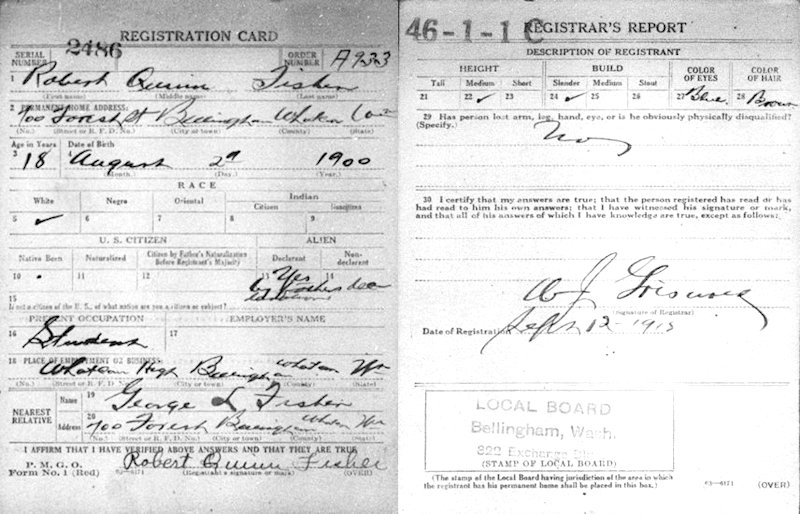 REGISTRATION CARD
SERIAL NUMBER 2486 ORDER NUMBER A933
1 Robert Quinn Fisher
(First name) (Middle name) (Last name)
2 PERMANENT HOME ADDRESS:
700 Forest St Bellingham Whatcom
(No.) (Street or R. F. D. No.) (City or town) (County) (State)
Age in Years Date of Birth
3 18 4 August 2nd 1900
(Month.) (Day.) (Year.)
RACE
White Negro Oriental Indian
Citizen Noncitizen
5 ✓ 6 7 8 9
U. S. CITIZEN ALIEN
Native Born Naturalized Citizen by Father's Naturalization Before Registrant's Majority Declarant Non-declarant
10 11 12 13 Yes 14
by Fathers
15
If not a citizen of the U. S., of what nation are you a citizen or subject?
PRESENT OCCUPATION EMPLOYER'S NAME
16 Student 17
18 PLACE OF EMPLOYMENT OR BUSINESS:
Whatcom High Bellingham Whatcom Wn
(No.) (Street or R. F. D. No.) (City or town) (County) (State)
NEAREST RELATIVE Name 19 George L Fisher
Address 20 700 Forest Bellingham Whatcom Wn
(No.) (Street or R. F. D. No.) (City or town) (County) (State)
I AFFIRM THAT I HAVE VERIFIED ABOVE ANSWERS AND THAT THEY ARE TRUE
P. M. G. O.
Form No. 1 (Red) Robert Quinn Fisher
03-6171 (Registrant's signature or mark) (OVER)
46-1-1 C REGISTRAR'S REPORT
DESCRIPTION OF REGISTRANT
HEIGHT BUILD COLOR OF EYES COLOR OF HAIR
Tall Medium Short Slender Medium Stout
21 22 ✓ 23 24 ✓ 25 26 27 Blue 28 Brown
29 Has person lost arm, leg, hand, eye, or is he obviously physically disqualified?
(Specify.) No
30 I certify that my answers are true; that the person registered has read or has
had read to him his own answers; that I have witnessed his signature or mark,
and that all of his answers of which I have knowledge are true, except as follows:
W J Griswold
(Signature of Registrar)
Date of Registration Sept 12-1918
LOCAL BOARD
Bellingham, Wash.
322 Exchange
(STAMP OF LOCAL BOARD)
(The stamp of the Local Board having jurisdiction of the area in which
the registrant has his permanent home shall be placed in this box.)
03-6171 (OVER)